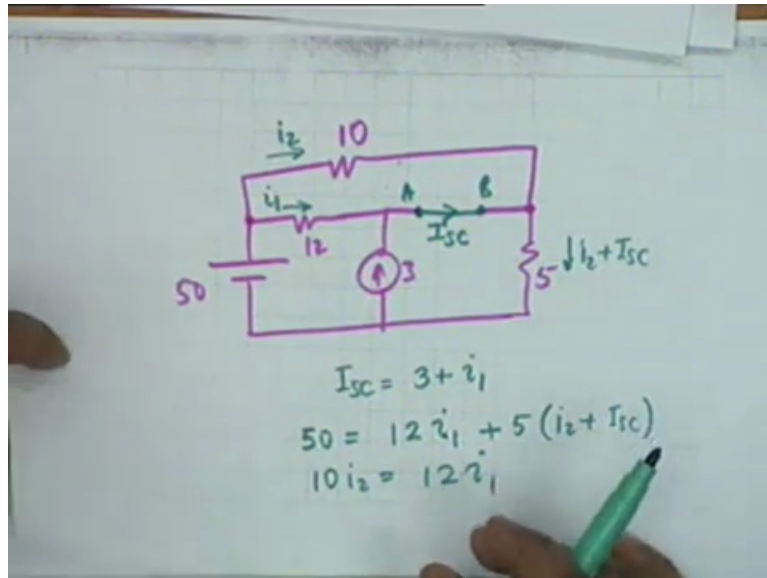 i₂ 10
i₁ A B
12 I_SC ↓ i₂ + I_SC
50 3 5
I_SC = 3 + i₁
50 = 12 i₁ + 5 (i₂ + I_SC)
10 i₂ = 12 i₁